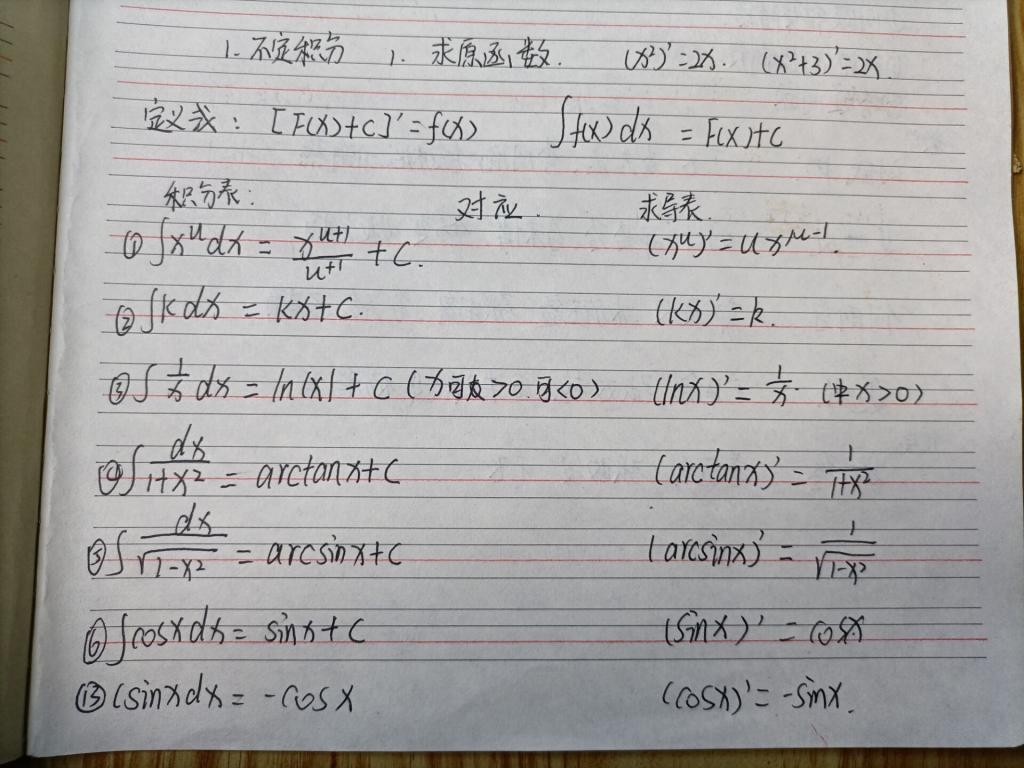 1. 不定积分 1. 求原函数. (x²)'=2x. (x²+3)'=2x.
定义式: [F(x)+C]'=f(x) ∫f(x)dx = F(x)+C
积分表: 对应. 求导表.
① ∫x^u dx = x^(u+1)/(u+1) + C. (x^u)'=u x^(u-1).
② ∫k dx = kx+C. (kx)'=k.
③ ∫ 1/x dx = ln|x| + C (x可>0 可<0) (lnx)' = 1/x. (x>0)
④ ∫ dx/(1+x²) = arctanx+C (arctanx)' = 1/(1+x²)
⑤ ∫ dx/√(1-x²) = arcsinx+C (arcsinx)' = 1/√(1-x²)
⑥ ∫cosxdx = sinx+C (sinx)' = cosx
⑬ ∫sinxdx = -cosx (cosx)'=-sinx.